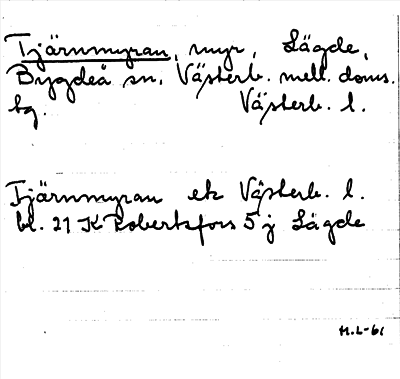 Tjärnmyran, myr, Lägde,
Bygdeå sn. Västerb. mell. doms.
bg. Västerb. l.
Tjärnmyran ek Västerb. l.
bl. 21 K Robertsfors 5 j Lägde
M.L-61